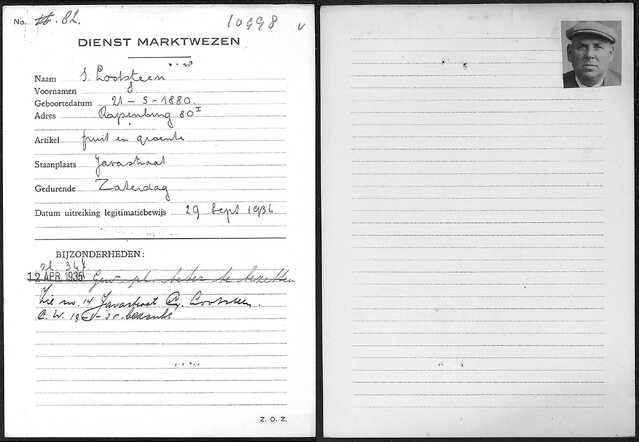 No. 82. 10998
DIENST MARKTWEZEN
Naam S. Lootsteen
Voornamen S
Geboortedatum 21-5-1880.
Adres Rapenburg 80 I
Artikel fruit en groente
Staanplaats Javastraat
Gedurende Zaterdag
Datum uitreiking legitimatiebewijs 29 Sept 1936
BIJZONDERHEDEN:
12 APR. 1935 Gew. pl.
Zie no. 14 Javastraat Lootsteen.
Z. O. Z.